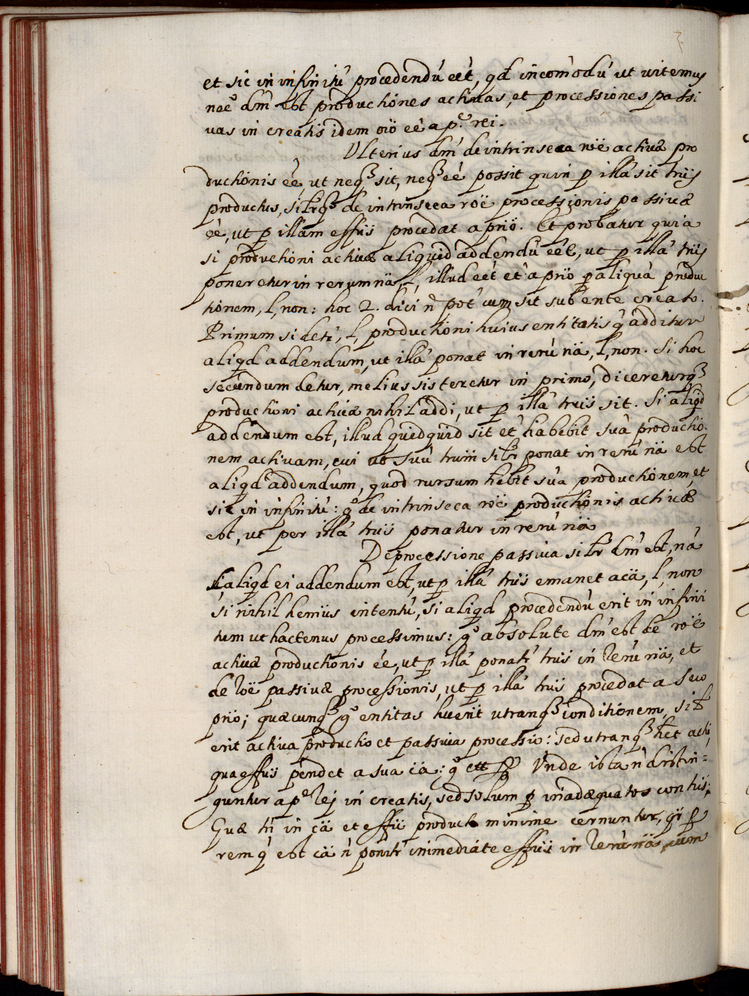 et sic in infinitũ procedendũ eēt, qd incom̃odũ ut uitemus
dm̃ est productiones actiuas, et processiones passi
uas in creatis idem oĩo eē a pᵉ rei.
Ulterius dm̃ de intrinseca rõe actiuæ pro
ductionis eē, ut neqʒ sit, neqʒ eē possit quin p illã sit
productus, de intrinseca rõe processionis passiuæ
eē, ut p illam effũs procedat a prĩo. Et probatur quia
si productioni actiuæ aliquid addendũ eēt, ut p illã
poneretur in rerum nã, illud eēt et̃ a prĩo p aliquã produ
ctionem, l, non: hoc 2. dici ñ pot̃ cum sit sub ente creato.
Primum si det̃, l, productioni huius entitatis q̃ additur
aliqd addendum, ut illã ponat in rerũ nã, l, non. Si hoc
secundum detur, melius sisteretur in primo, diceretur qʒ
productioni actiuæ nihil addi, ut p illã sit. Si aliqd
addendum est, illud quidquid sit et̃ habebit suã productio
nem actiuam, cui ut suũ ponat in rerũ nã est
aliqd addendum, quod rursum hebit suã productionem, et
sic in infinitũ: gᵒ de intrinseca rõe productionis actiuæ
est, ut per illã ponatur in rerũ nã
De processione passiua sil̃r dm̃ est, nã
l aliqd ei addendum est, ut p illã emanet a cã, l, non
si nihil hemus intentũ, si aliqd procedendũ erit in infini
tum ut hactenus processimus: gᵒ absolute dm̃ est de rõe
actiuæ productionis eē, ut p illã ponat̃ in rerũ nã, et
de rõe passiuæ processionis, ut p illã procedat a suo
prĩo; quæcunqʒ gᵒ entitas huerit utranqʒ conditionem,
erit actiua productio et passiua processio: sed utranqʒ het
qua effũs pendet a sua cã: gᵒ Unde ista ñ distin-
guntur a pᵉ rei in creatis, sed solum p inadæquatos
Quæ tñ in cã et minime cernuntur, qr̃ p
rem q̃ est cã ñ ponit̃ inmediate effũs in rerũ nã, cum